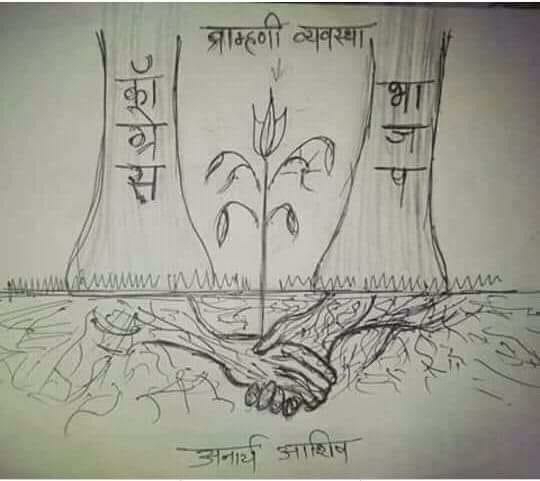 ब्राम्हणी व्यवस्था
काँग्रेस
भाजप
अनार्य आशिष